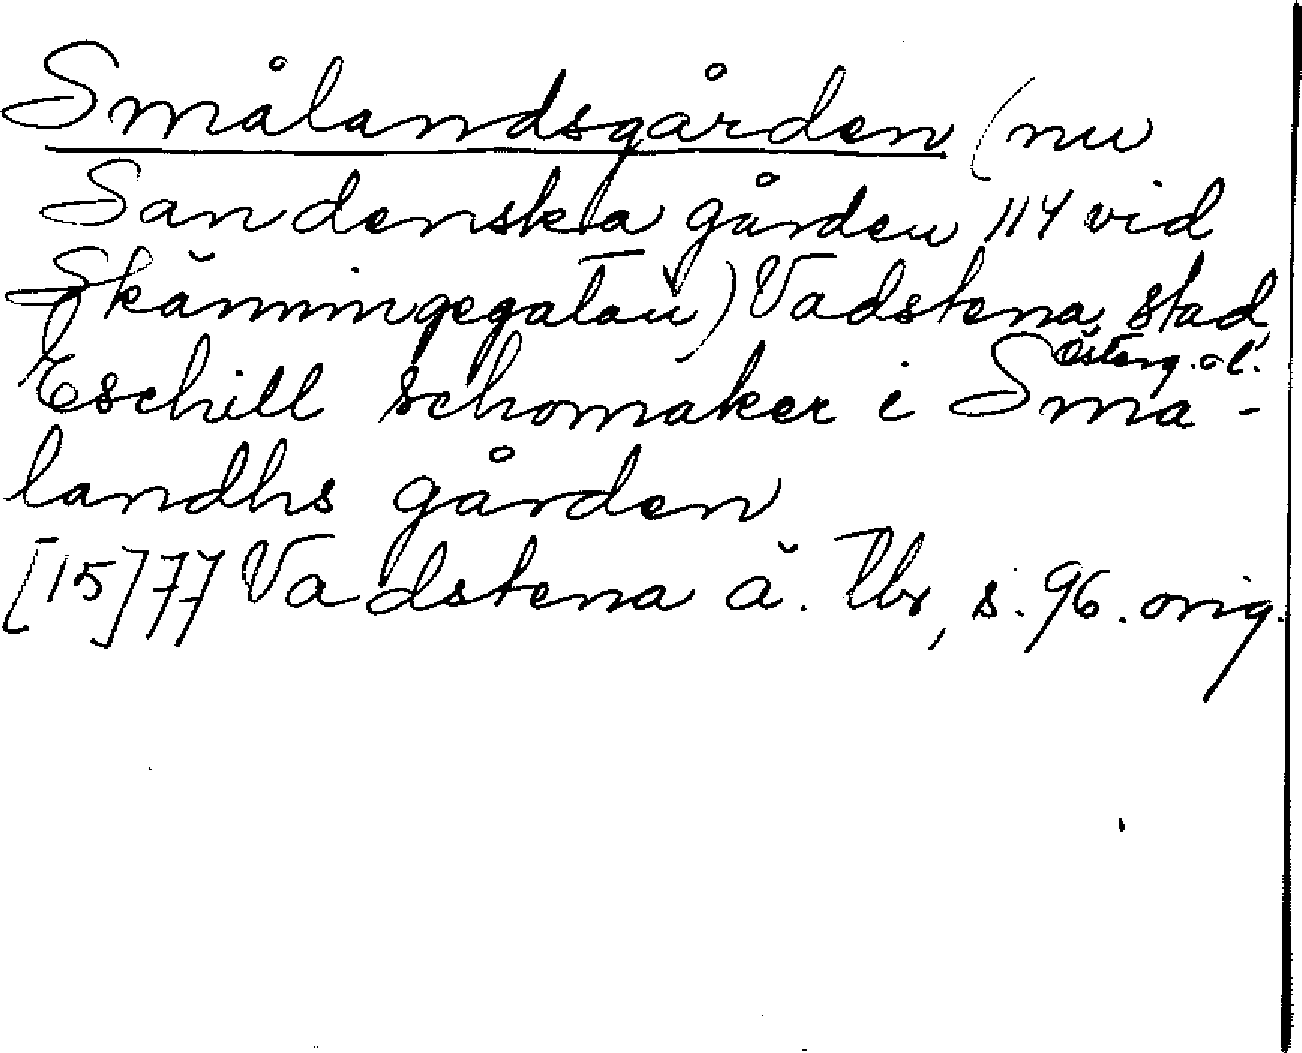 Smålandsgården (nu
Sandenska gården 114 vid
Skänningegatan) Vadstena stad,
Österg. ol.
Eschill schomaker i Sma-
landhs gården
[15]77 Vadstena ä. Tbr, s. 96. orig.